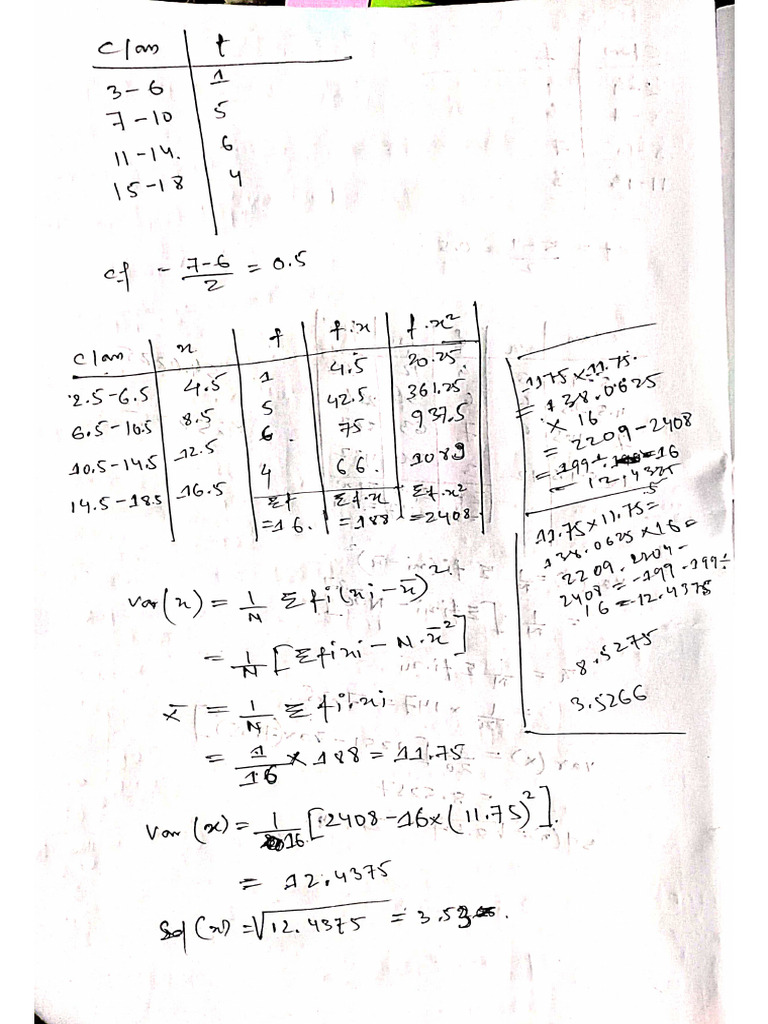 Class | f
3-6 | 1
7-10 | 5
11-14. | 6
15-18 | 4
cf - 7-6/2 = 0.5
Class | x | f | f.x | f.x²
2.5-6.5 | 4.5 | 1 | 4.5 | 20.25
6.5-10.5 | 8.5 | 5 | 42.5 | 361.25
10.5-14.5 | 12.5 | 6. | 75 | 937.5
14.5-18.5 | 16.5 | 4 | 66. | 1089
Σf | Σf.x | Σf.x²
=16. | =188 | =2408
Var(x) = 1/N Σfi(xi-x̄)²
= 1/N [Σfixi - N.x̄²]
x̄ = 1/N Σfi.xi
= 1/16 × 188 = 11.75
Var(x) = 1/16 [2408-16×(11.75)²].
= 12.4375
Sd(x) = √12.4375 = 3.52
1175×11.75.
= 138.0625
× 16
= 2209-2408
= 199÷ 16
= 12.4375
11.75×11.75=
138.0625×16=
2209.
2408=-199.199÷
16=12.4375
8.5275
3.5266